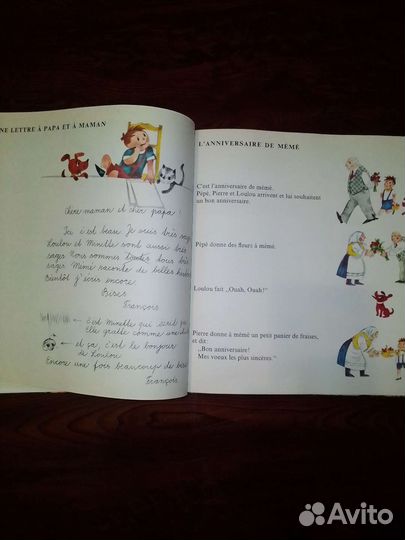 NE LETTRE À PAPA ET À MAMAN
Chère maman et cher papa!
Ici c'est beau. Je suis très sage
Loulou et Minette sont aussi très
sages. Nous sommes toutes tous très
sages. Mémé raconte de belles histoi
Bientôt j'écris encore.
Bises
François
C'est Minette qui écrit ça
Elle gratte comme une
et ça, c'est le bonjour
de Loulou
Encore une fois beaucoup de bises
François
L'ANNIVERSAIRE DE MÉMÉ
C'est l'anniversaire de mémé.
Pépé, Pierre et Loulou arrivent et lui souhaitent
un bon anniversaire.
Pépé donne des fleurs à mémé.
Loulou fait „Ouah, Ouah!"
Pierre donne à mémé un petit panier de fraises,
et dit:
„Bon anniversaire!
Mes voeux les plus sincères."
Avito